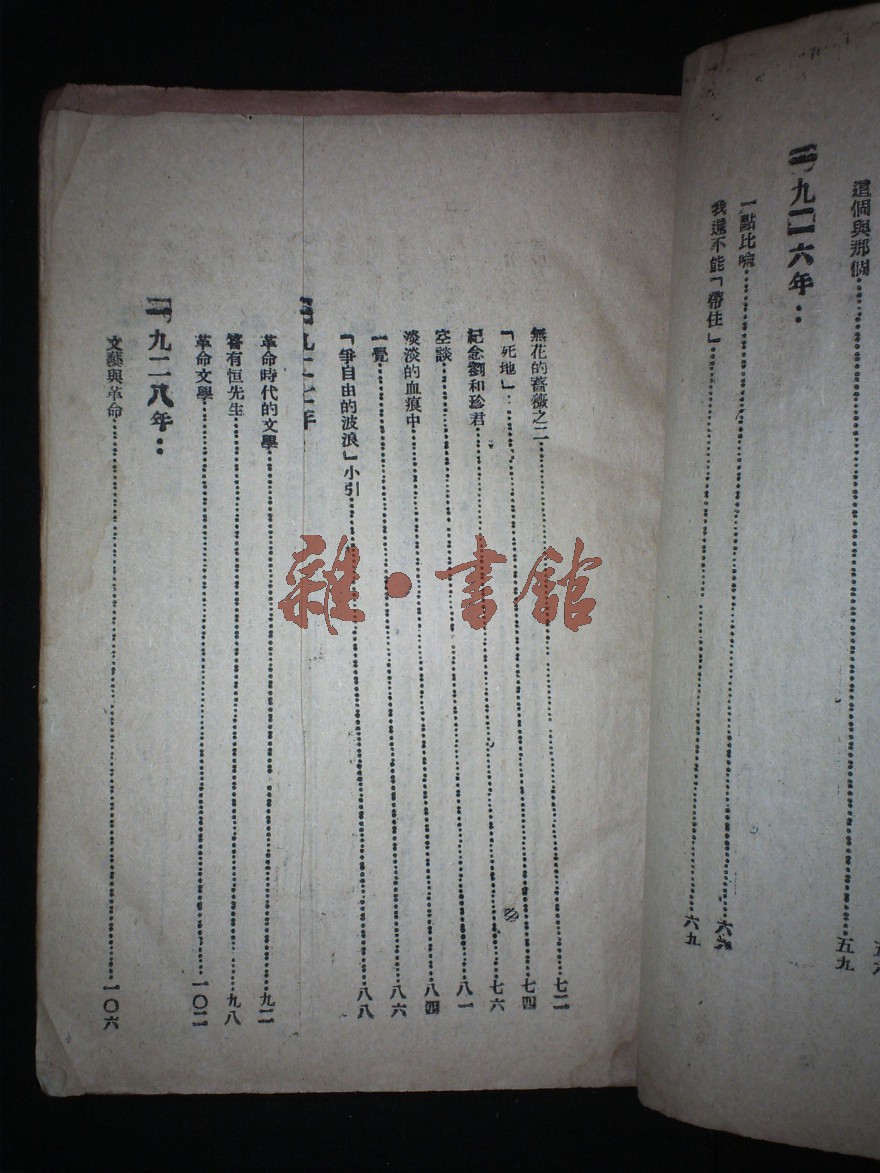 這個與那個……五九
一九二六年：
一點比喻……六六
我還不能「帶住」……六九
無花的薔薇之二……七二
「死地」……七四
紀念劉和珍君……七六
空談……八一
淡淡的血痕中……八四
一覺……八六
「爭自由的波浪」小引……八八
一九二七年
革命時代的文學……九二
答有恒先生……九八
革命文學……一〇二
一九二八年：
文藝與革命……一〇六
雜·書館